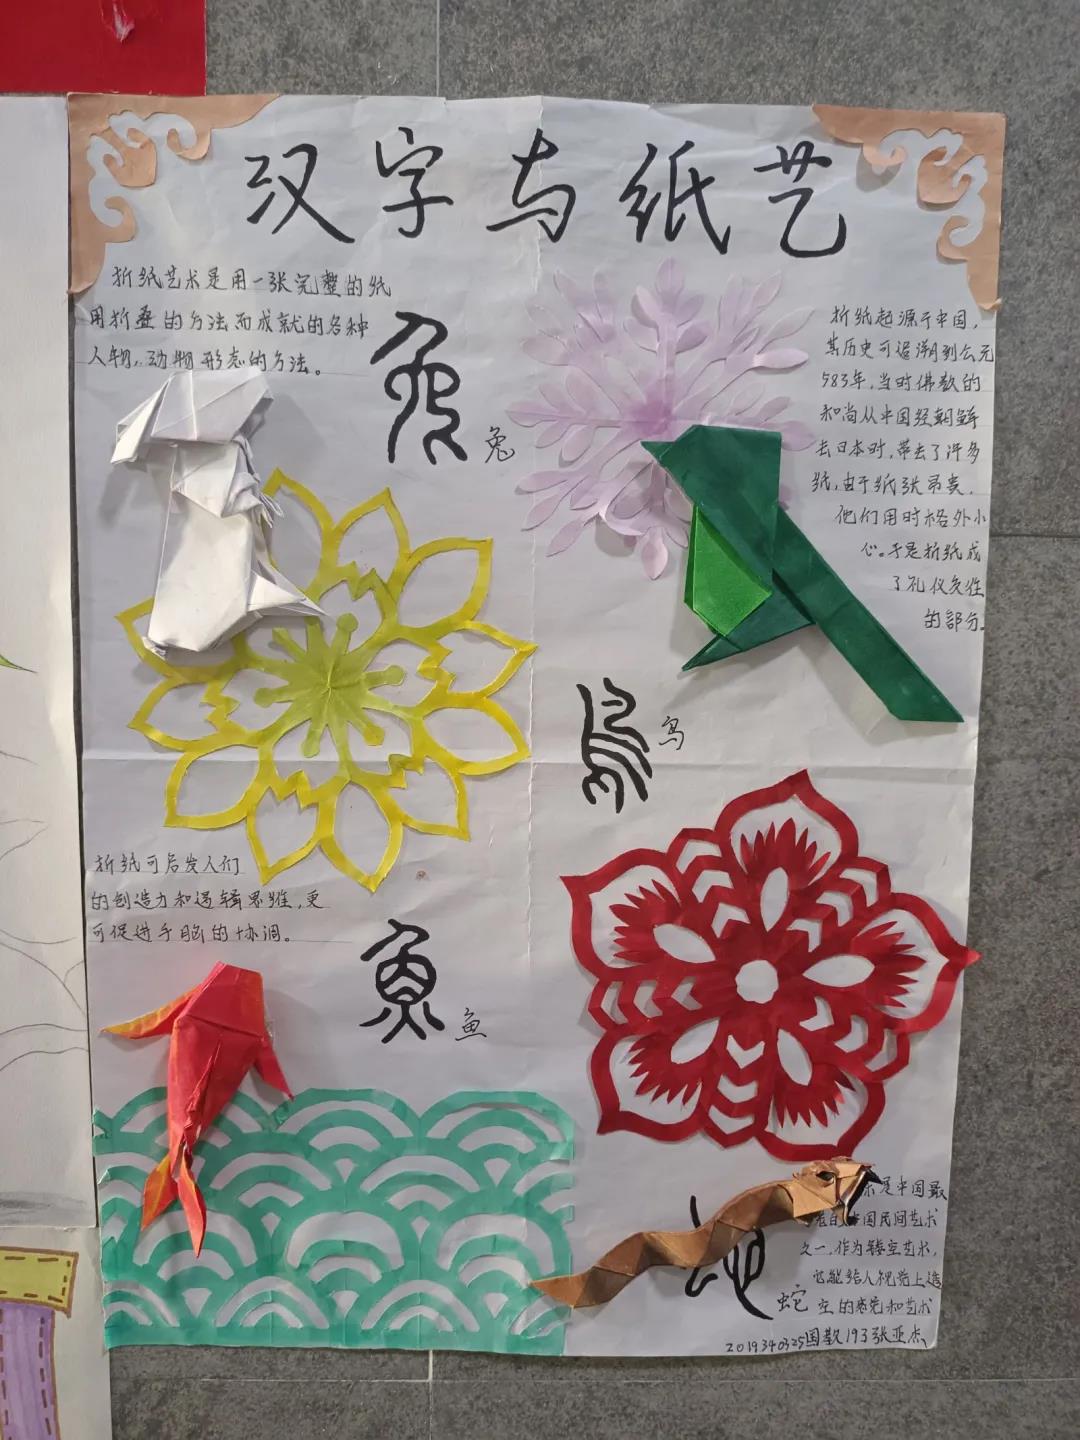 汉字与纸艺
折纸艺术是用一张完整的纸
用折叠的方法而成就的各种
人物、动物形态的方法。
兔
兔
折纸起源于中国,
其历史可追溯到公元
583年,当时佛教的
和尚从中国经朝鲜
去日本时,带去了许多
纸,由于纸张昂贵,
他们用时格外小
心。于是折纸成
了礼仪
的部分。
鳥
鸟
折纸可启发人们
的创造力和逻辑思维,更
可促进手脑的协调。
魚
鱼
蛇
是中国最
的中国民间艺术
之一,作为镂空艺术,
它能给人视觉上造
空的感觉和艺术
国教193张亚杰